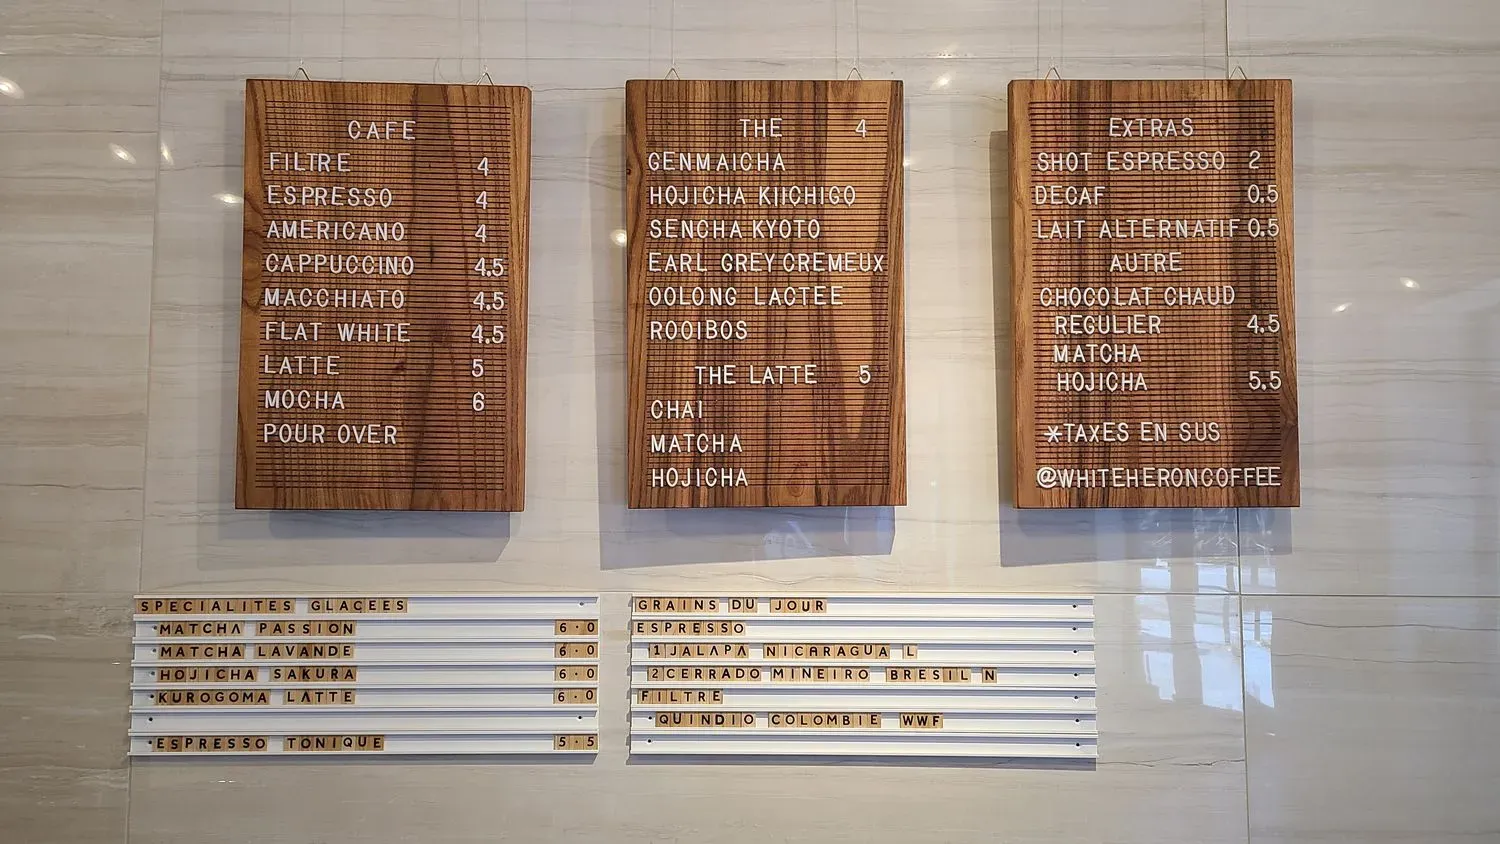 CAFE
FILTRE 4
ESPRESSO 4
AMERICANO 4
CAPPUCCINO 4.5
MACCHIATO 4.5
FLAT WHITE 4.5
LATTE 5
MOCHA 6
POUR OVER
THE 4
GENMAICHA
HOJICHA KIICHIGO
SENCHA KYOTO
EARL GREY CREMEUX
OOLONG LACTEE
ROOIBOS
THE LATTE 5
CHAI
MATCHA
HOJICHA
EXTRAS
SHOT ESPRESSO 2
DECAF 0.5
LAIT ALTERNATIF 0.5
AUTRE
CHOCOLAT CHAUD
REGULIER 4.5
MATCHA
HOJICHA 5.5
*TAXES EN SUS
@WHITEHERONCOFFEE
SPECIALITES GLACEES
MATCHA PASSION 6.0
MATCHA LAVANDE 6.0
HOJICHA SAKURA 6.0
KUROGOMA LATTE 6.0
ESPRESSO TONIQUE 5.5
GRAINS DU JOUR
ESPRESSO
1 JALAPA NICARAGUA L
2 CERRADO MINEIRO BRESIL N
FILTRE
QUINDIO COLOMBIE WWF